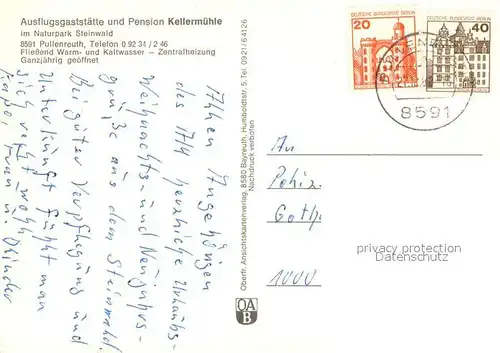 Ausflugsgaststätte und Pension Kellermühle
im Naturpark Steinwald
8591 Pullenreuth, Telefon 0 92 34 / 2 46
Fließend Warm- und Kaltwasser – Zentralheizung
Ganzjährig geöffnet
Angehörigen
des herzliche Urlaubs-
Weihnachts- und Neujahrs-
grüße aus dem Steinwald.
Bei guter Verpflegung und
Unterkunft fühlt man
sich recht wohl
Frau u. Kinder
Oberfr. Ansichtskartenverlag, 8580 Bayreuth, Humboldtstr. 5, Tel. 0921/64126
Nachdruck verboten
OA
B
DEUTSCHE BUNDESPOST BERLIN
20
DEUTSCHE BUNDESPOST BERLIN
40
8591
An
Poliz.
1000
privacy protection
Datenschutz